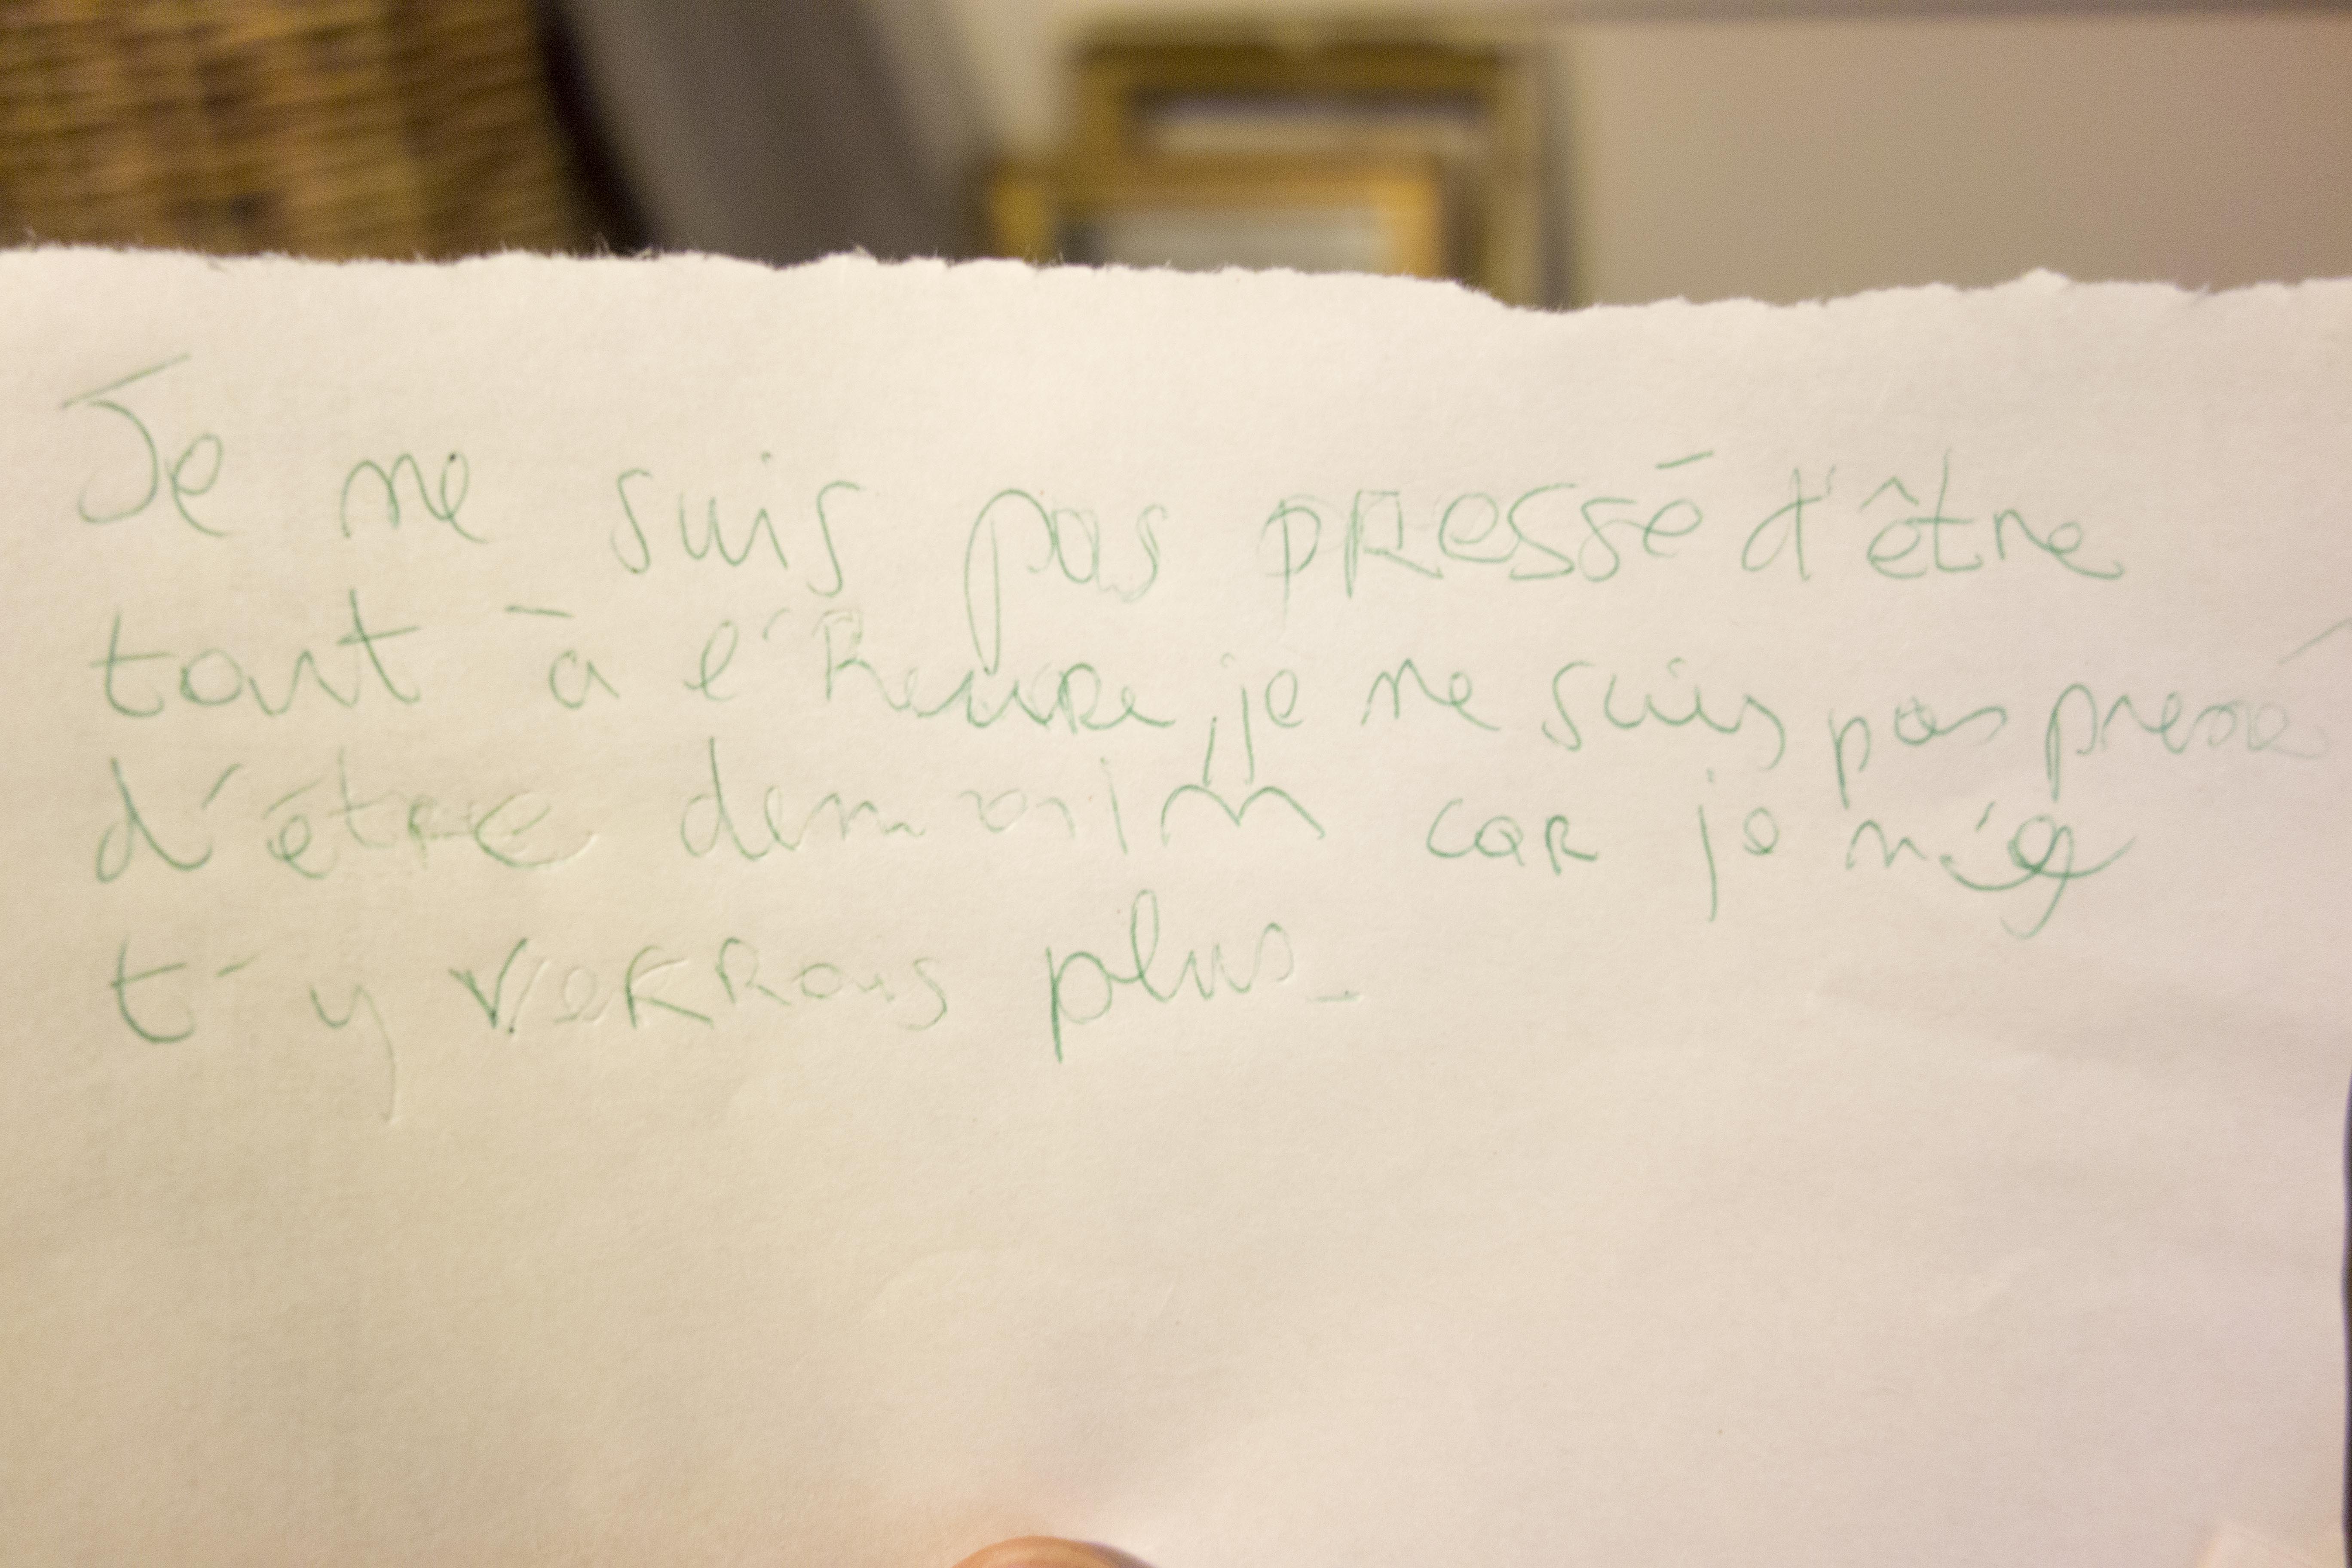 Je ne suis pas pressé d'être
tout à l'heure, je ne suis pas pressé
d'être demain car je
t'y verrais plus_